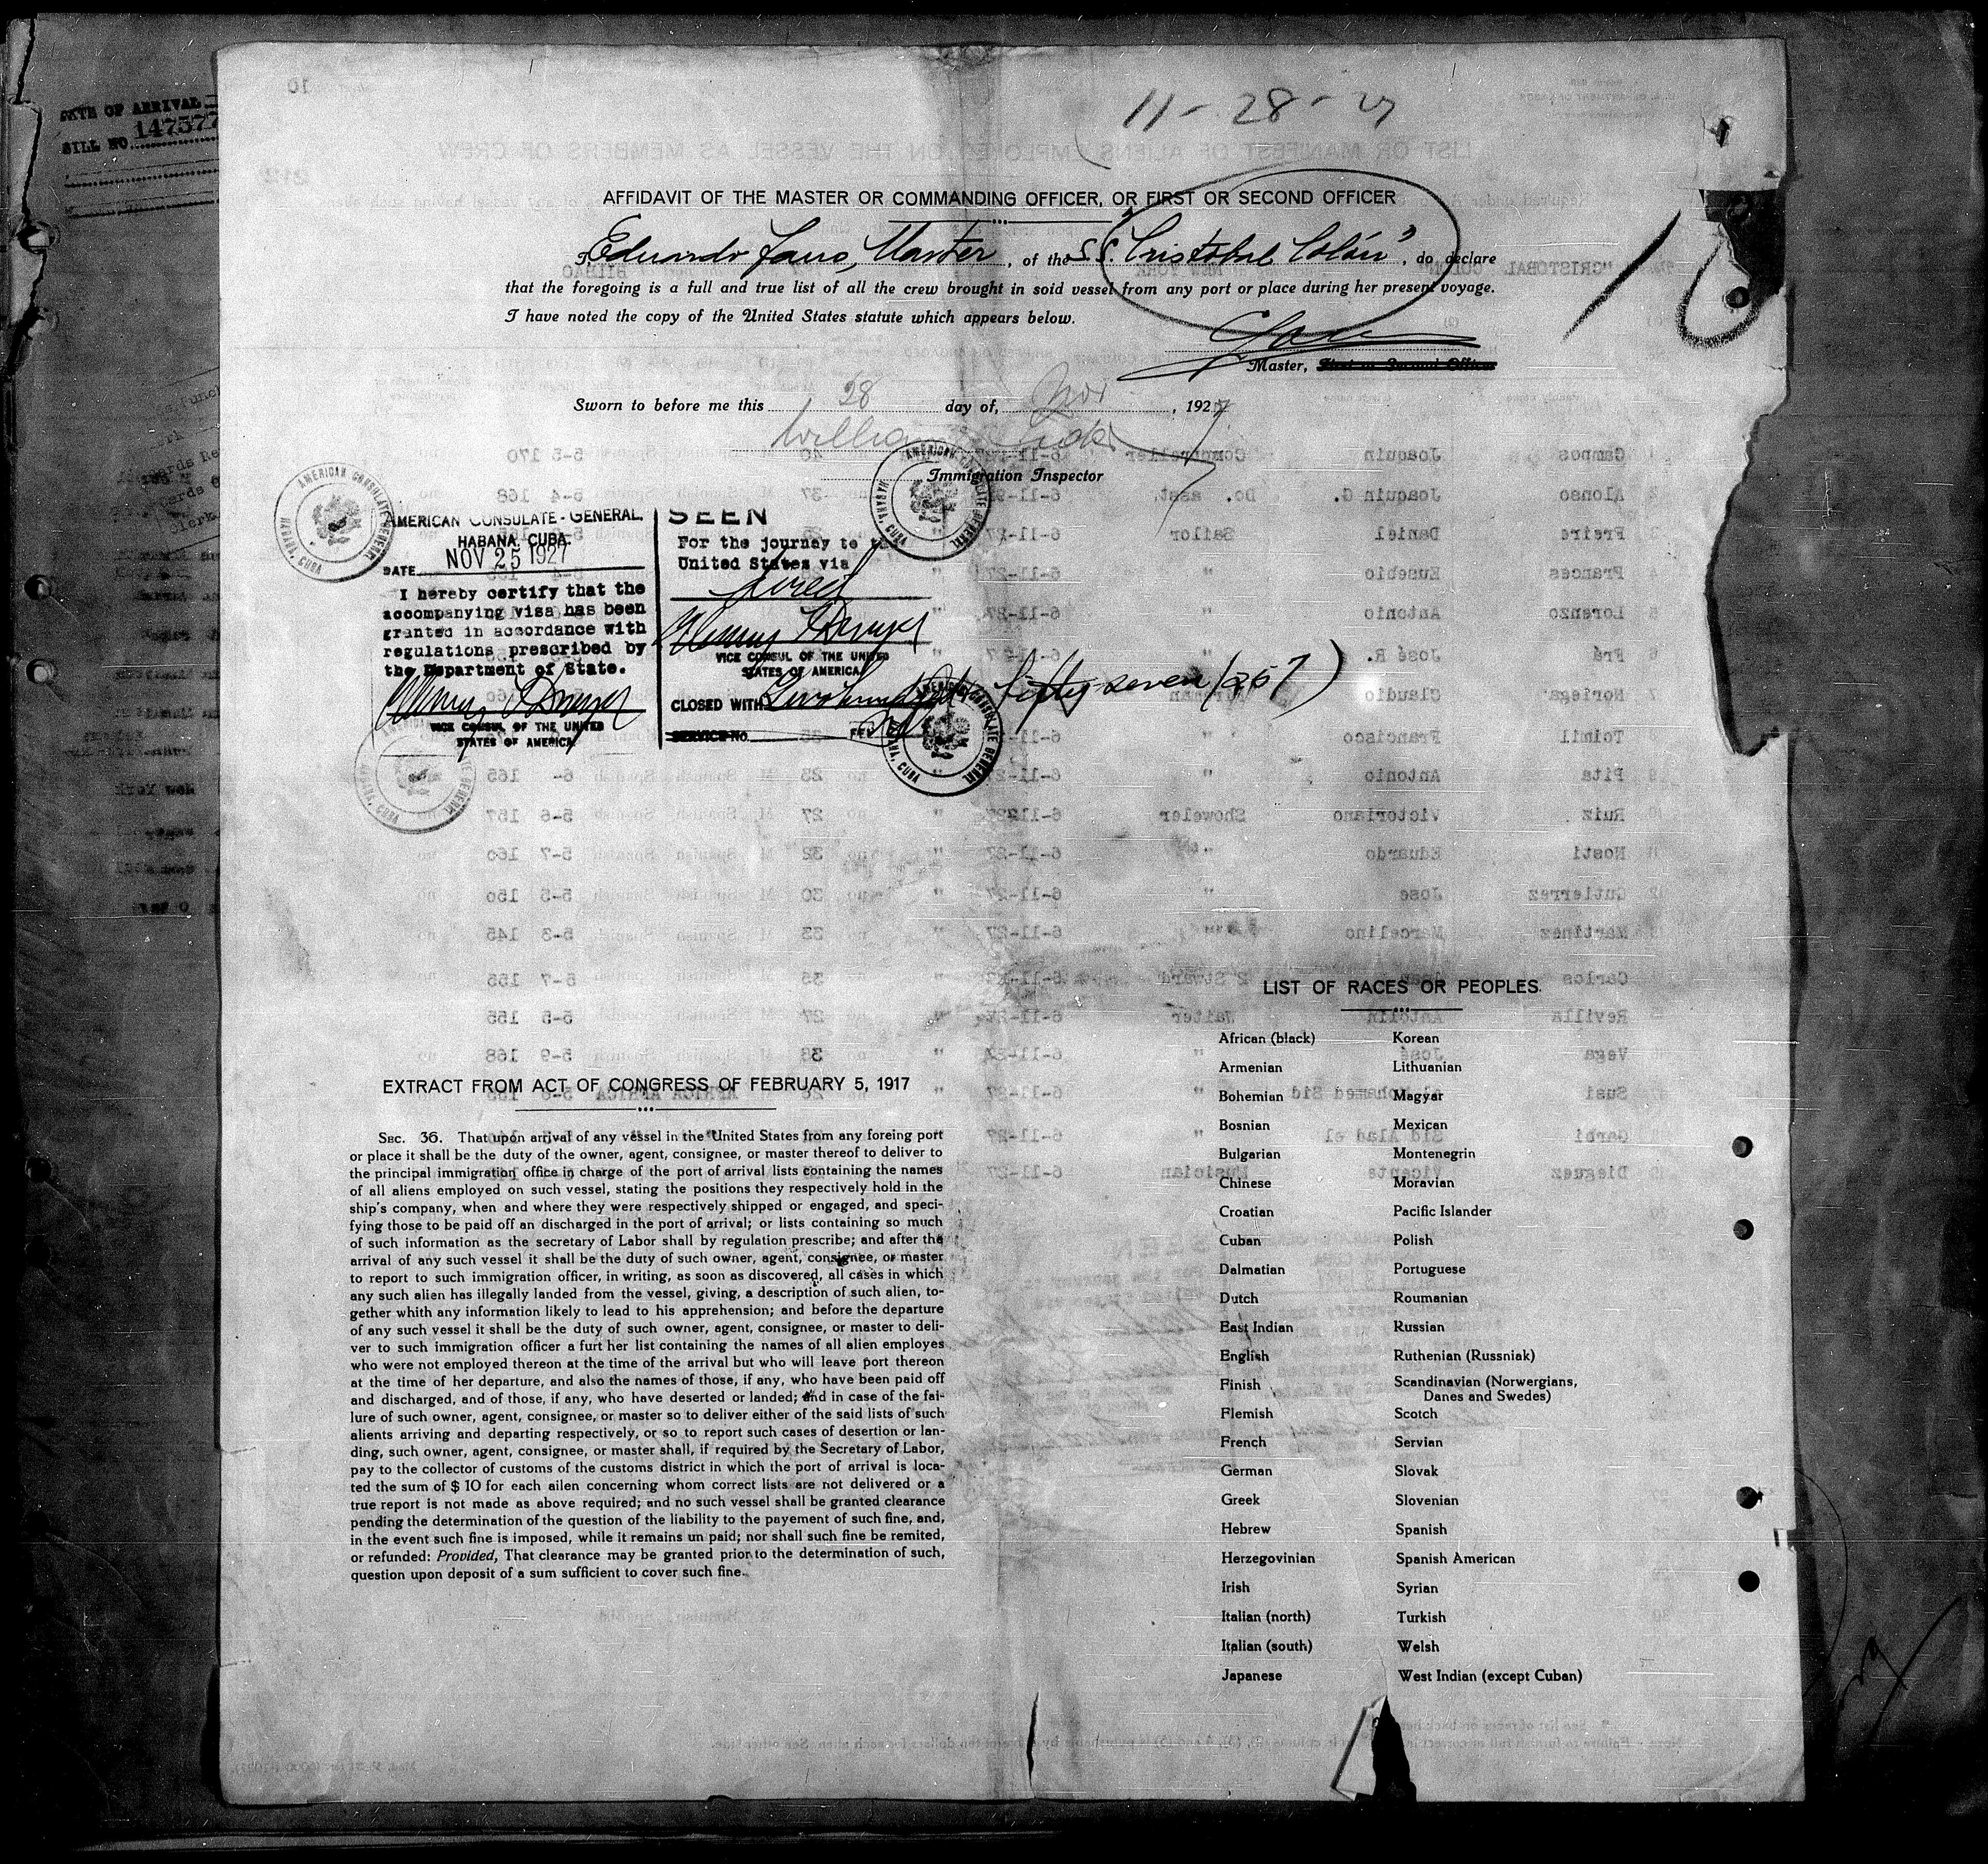 DATE OF ARRIVAL
BILL NO. 147577
11-28-27
AFFIDAVIT OF THE MASTER OR COMMANDING OFFICER, OR FIRST OR SECOND OFFICER
I, Eduardo Fano, Master, of the S.S. "Cristobal Colón", do declare
that the foregoing is a full and true list of all the crew brought in soid vessel from any port or place during her present voyage.
I have noted the copy of the United States statute which appears below.
10
Master, First or Second Officer
Sworn to before me this 28 day of, Nov, 1927
William
Immigration Inspector
AMERICAN CONSULATE GENERAL
HABANA, CUBA
AMERICAN CONSULATE GENERAL
HABANA, CUBA
AMERICAN CONSULATE-GENERAL,
HABANA, CUBA.
DATE NOV 25 1927
I hereby certify that the
accompanying visa has been
granted in accordance with
regulations prescribed by
the Department of State.
VICE CONSUL OF THE UNITED
STATES OF AMERICA
SEEN
For the journey to the
United States via
direct
VICE CONSUL OF THE UNITED
STATES OF AMERICA
CLOSED WITH Two hundred fifty seven (257)
SERVICE NO. FEE
AMERICAN CONSULATE GENERAL
HABANA, CUBA
LIST OF RACES OR PEOPLES
African (black) Korean
Armenian Lithuanian
Bohemian Magyar
Bosnian Mexican
Bulgarian Montenegrin
Chinese Moravian
Croatian Pacific Islander
Cuban Polish
Dalmatian Portuguese
Dutch Roumanian
East Indian Russian
English Ruthenian (Russniak)
Finish Scandinavian (Norwergians,
Danes and Swedes)
Flemish Scotch
French Servian
German Slovak
Greek Slovenian
Hebrew Spanish
Herzegovinian Spanish American
Irish Syrian
Italian (north) Turkish
Italian (south) Welsh
Japanese West Indian (except Cuban)
EXTRACT FROM ACT OF CONGRESS OF FEBRUARY 5, 1917
SEC. 36. That upon arrival of any vessel in the United States from any foreing port
or place it shall be the duty of the owner, agent, consignee, or master thereof to deliver to
the principal immigration office in charge of the port of arrival lists containing the names
of all aliens employed on such vessel, stating the positions they respectively hold in the
ship's company, when and where they were respectively shipped or engaged, and speci-
fying those to be paid off an discharged in the port of arrival; or lists containing so much
of such information as the secretary of Labor shall by regulation prescribe; and after the
arrival of any such vessel it shall be the duty of such owner, agent, consignee, or master
to report to such immigration officer, in writing, as soon as discovered, all cases in which
any such alien has illegally landed from the vessel, giving, a description of such alien, to-
gether whith any information likely to lead to his apprehension; and before the departure
of any such vessel it shall be the duty of such owner, agent, consignee, or master to deli-
ver to such immigration officer a furt her list containing the names of all alien employes
who were not employed thereon at the time of the arrival but who will leave port thereon
at the time of her departure, and also the names of those, if any, who have been paid off
and discharged, and of those, if any, who have deserted or landed; and in case of the fai-
lure of such owner, agent, consignee, or master so to deliver either of the said lists of such
alients arriving and departing respectively, or so to report such cases of desertion or lan-
ding, such owner, agent, consignee, or master shall, if required by the Secretary of Labor,
pay to the collector of customs of the customs district in which the port of arrival is loca-
ted the sum of $ 10 for each ailen concerning whom correct lists are not delivered or a
true report is not made as above required; and no such vessel shall be granted clearance
pending the determination of the question of the liability to the payement of such fine, and,
in the event such fine is imposed, while it remains un paid; nor shall such fine be remited,
or refunded: Provided, That clearance may be granted prior to the determination of such,
question upon deposit of a sum sufficient to cover such fine.